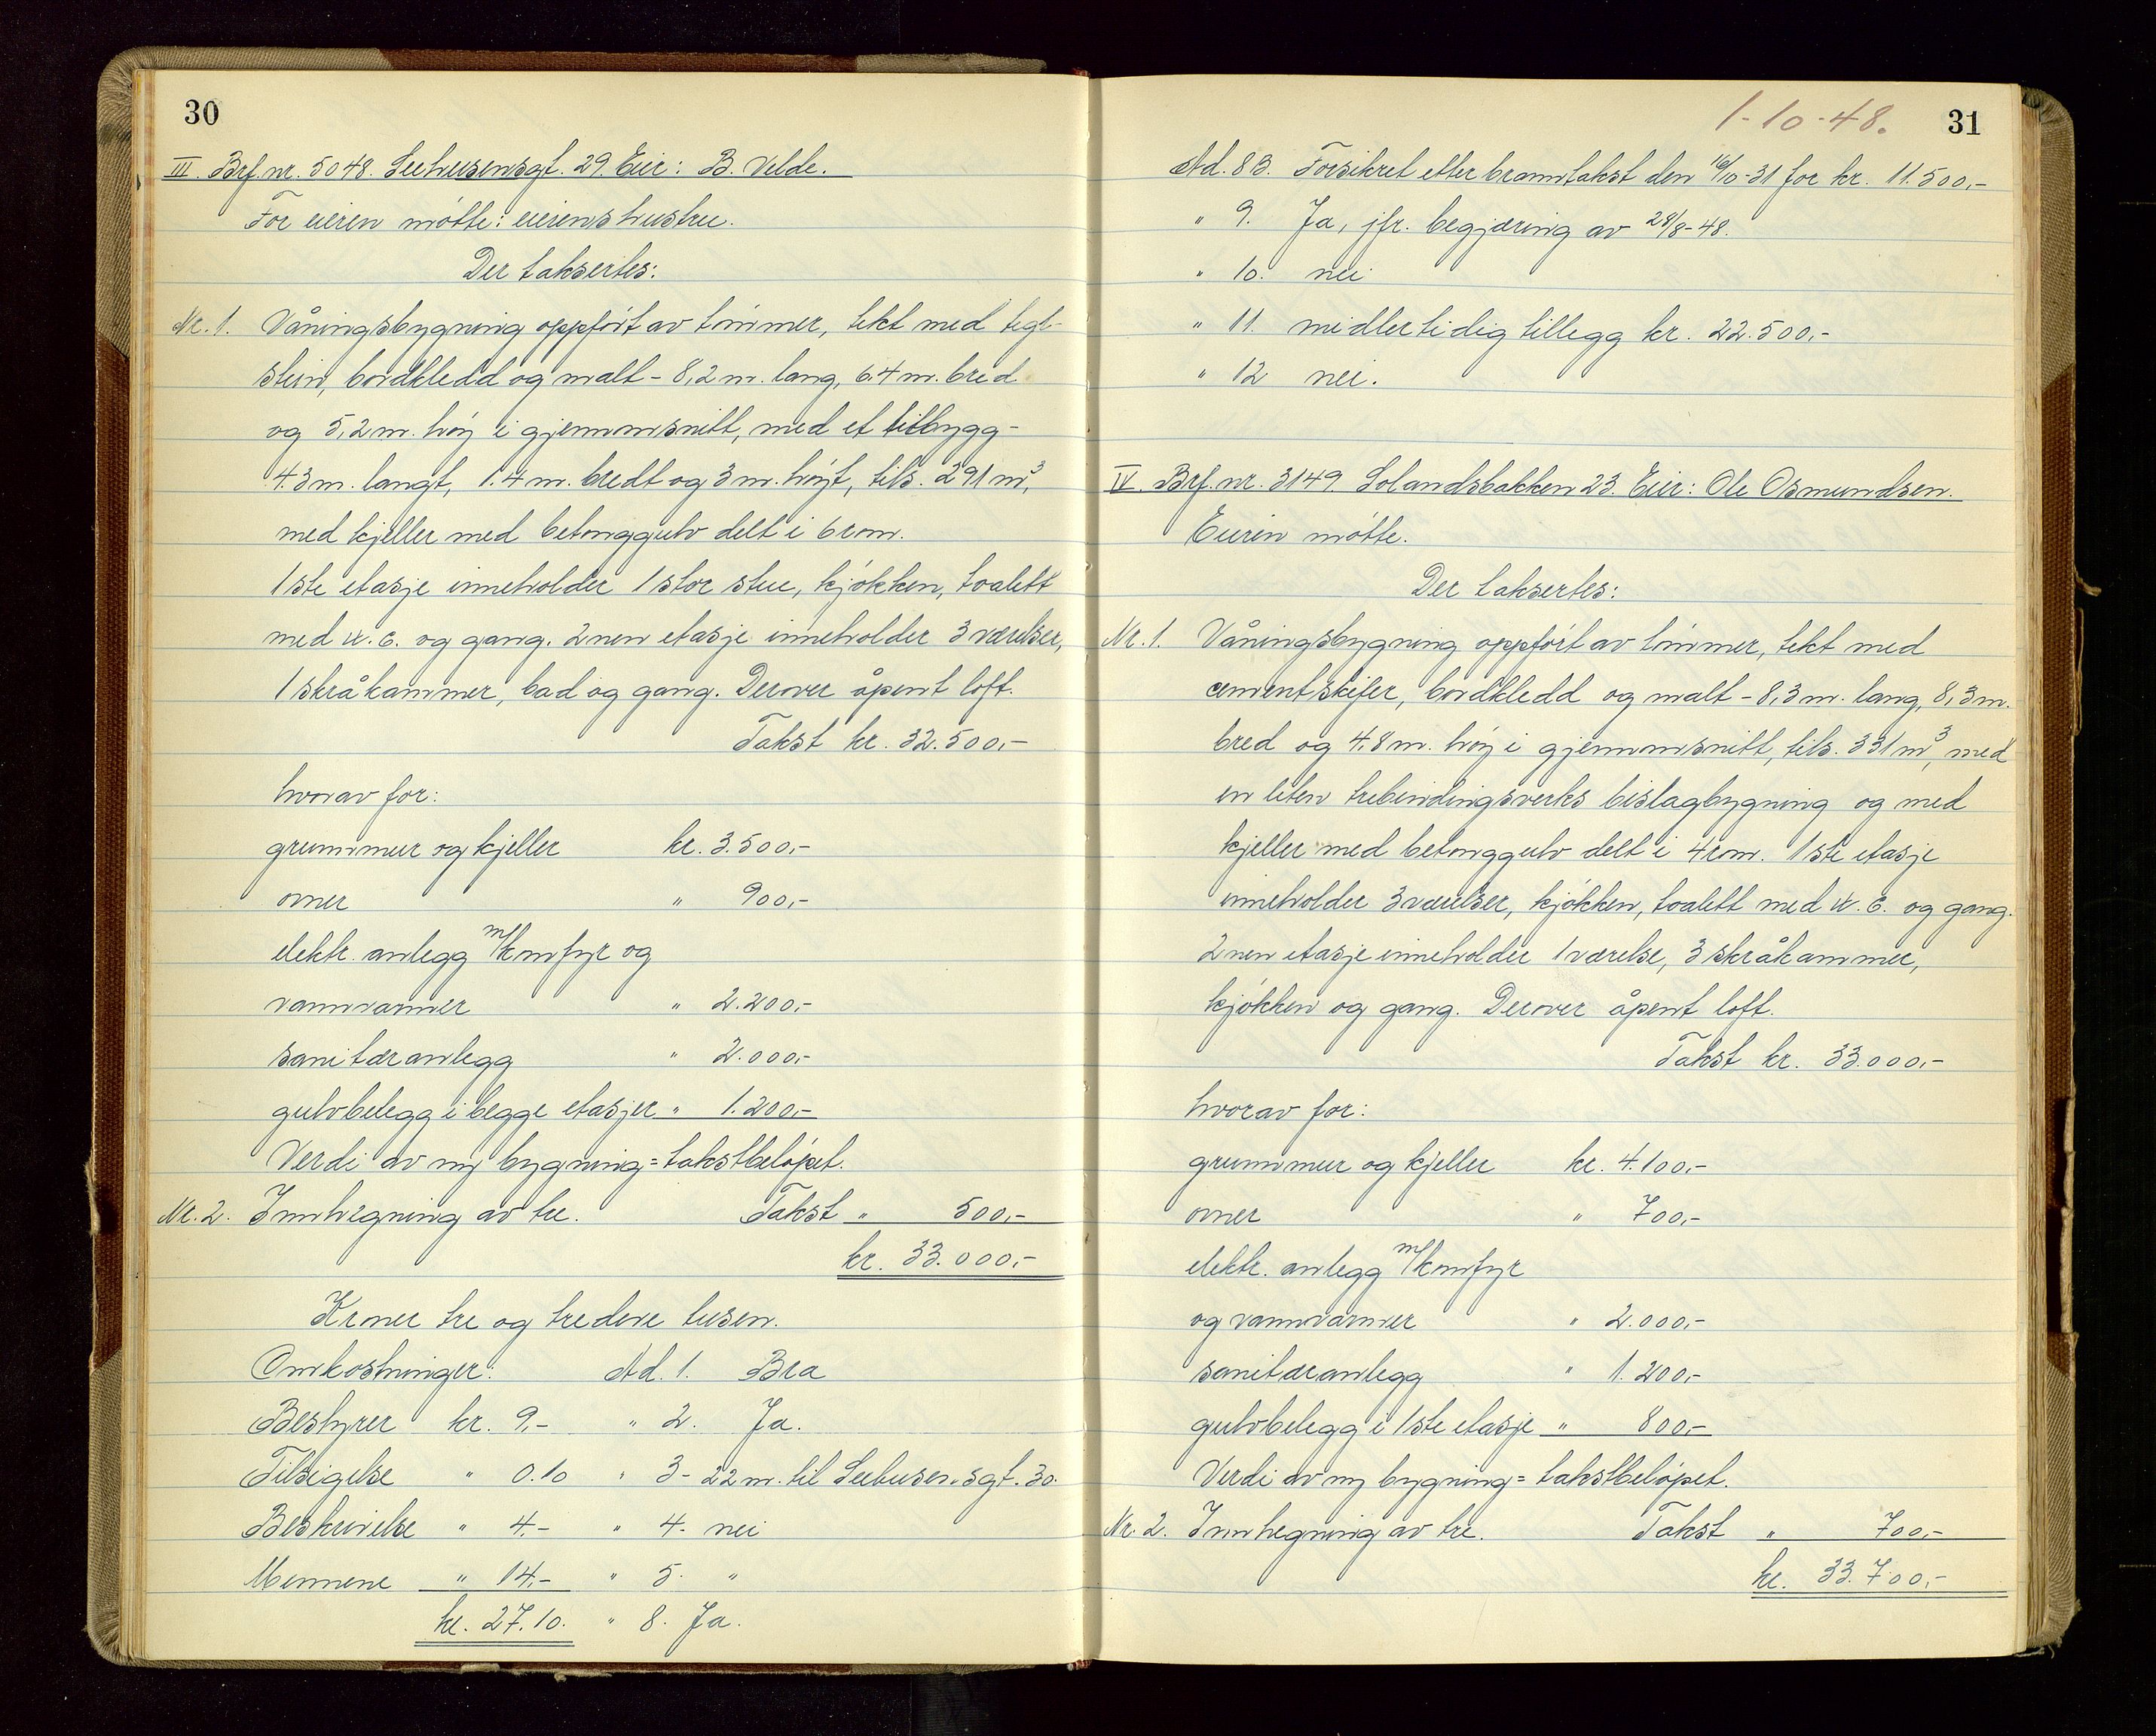 30
III. Brf. nr. 5048. Seehusensgt. 29. Eier: B. Velde.
For eieren møtte: eierens hustru.
Der taksertes:
Nr. 1. Våningsbygning oppført av tømmer, tekt med tegl-
stein, bordkledd og malt - 8,2 m. lang, 6.4 m. bred
og 5,2 m. høy i gjennmsnitt, med et tilbygg -
4.3 m. langt, 1.4 m. bredt og 3 m. høyt, tils. 291 m³,
med kjeller med betonggulv delt i 6 rom.
1ste etasje inneholder 1 stor stue, kjøkken, toalett
med w. c. og gang. 2nen etasje inneholder 3 værelser,
1 skråkammer, bad og gang. Derover åpent loft.
Takst kr. 32.500,-
hvorav for:
grunnmur og kjeller kr. 3.500,-
ovner " 900,-
elektr. anlegg m/komfyr og
vannvarmer " 2.200,-
sanitæranlegg " 2.000,-
gulvbelegg i begge etasjer " 1.200,-
Verdi av ny bygning = takstbeløpet.
Nr. 2. Innhegning av tre. Takst " 500,-
kr. 33.000,-
Kroner tre og tredeve tusen.
Omkostninger: Ad. 1. Bra
Bestyrer kr. 9,- " 2. Ja.
Tilsigelse " 0.10 " 3 - 22 m. til Seehusensgt. 30.
Beskrivelse " 4,- " 4. nei
Mennene " 14,- " 5. "
kr. 27.10. " 8. Ja.
1-10-48. 31
Ad. 8 B. Forsikret etter branntakst den 16/10-31 for kr. 11.500,-
" 9. Ja, jfr. begjæring av 28/8-48.
" 10. nei
" 11. midlertidig tillegg kr. 22.500,-
" 12 nei.
IV. Brf. nr. 3149. Solandsbakken 23. Eier: Ole Osmundsen.
Eieren møtte.
Der taksertes:
Nr. 1. Våningsbygning oppført av tømmer, tekt med
cementskifer, bordkledd og malt - 8,3 m. lang, 8,3 m.
bred og 4,8 m. høy i gjennmsnitt, tils. 331 m³, med
en liten trebindingsverks bislagbygning og med
kjeller med betonggulv delt i 4 rom. 1ste etasje
inneholder 3 værelser, kjøkken, toalett med w. c. og gang.
2nen etasje inneholder 1 værelse, 3 skråkammer,
kjøkken og gang. Derover åpent loft.
Takst kr. 33.000,-
hvorav for:
grunnmur og kjeller kr. 4.100,-
ovner " 700,-
elektr. anlegg m/komfyr
og vannvarmer " 2.000,-
sanitæranlegg " 1.200,-
gulvbelegg i 1ste etasje " 800,-
Verdi av ny bygning = takstbeløpet.
Nr. 2. Innhegning av tre. Takst " 700,-
kr. 33.700,-